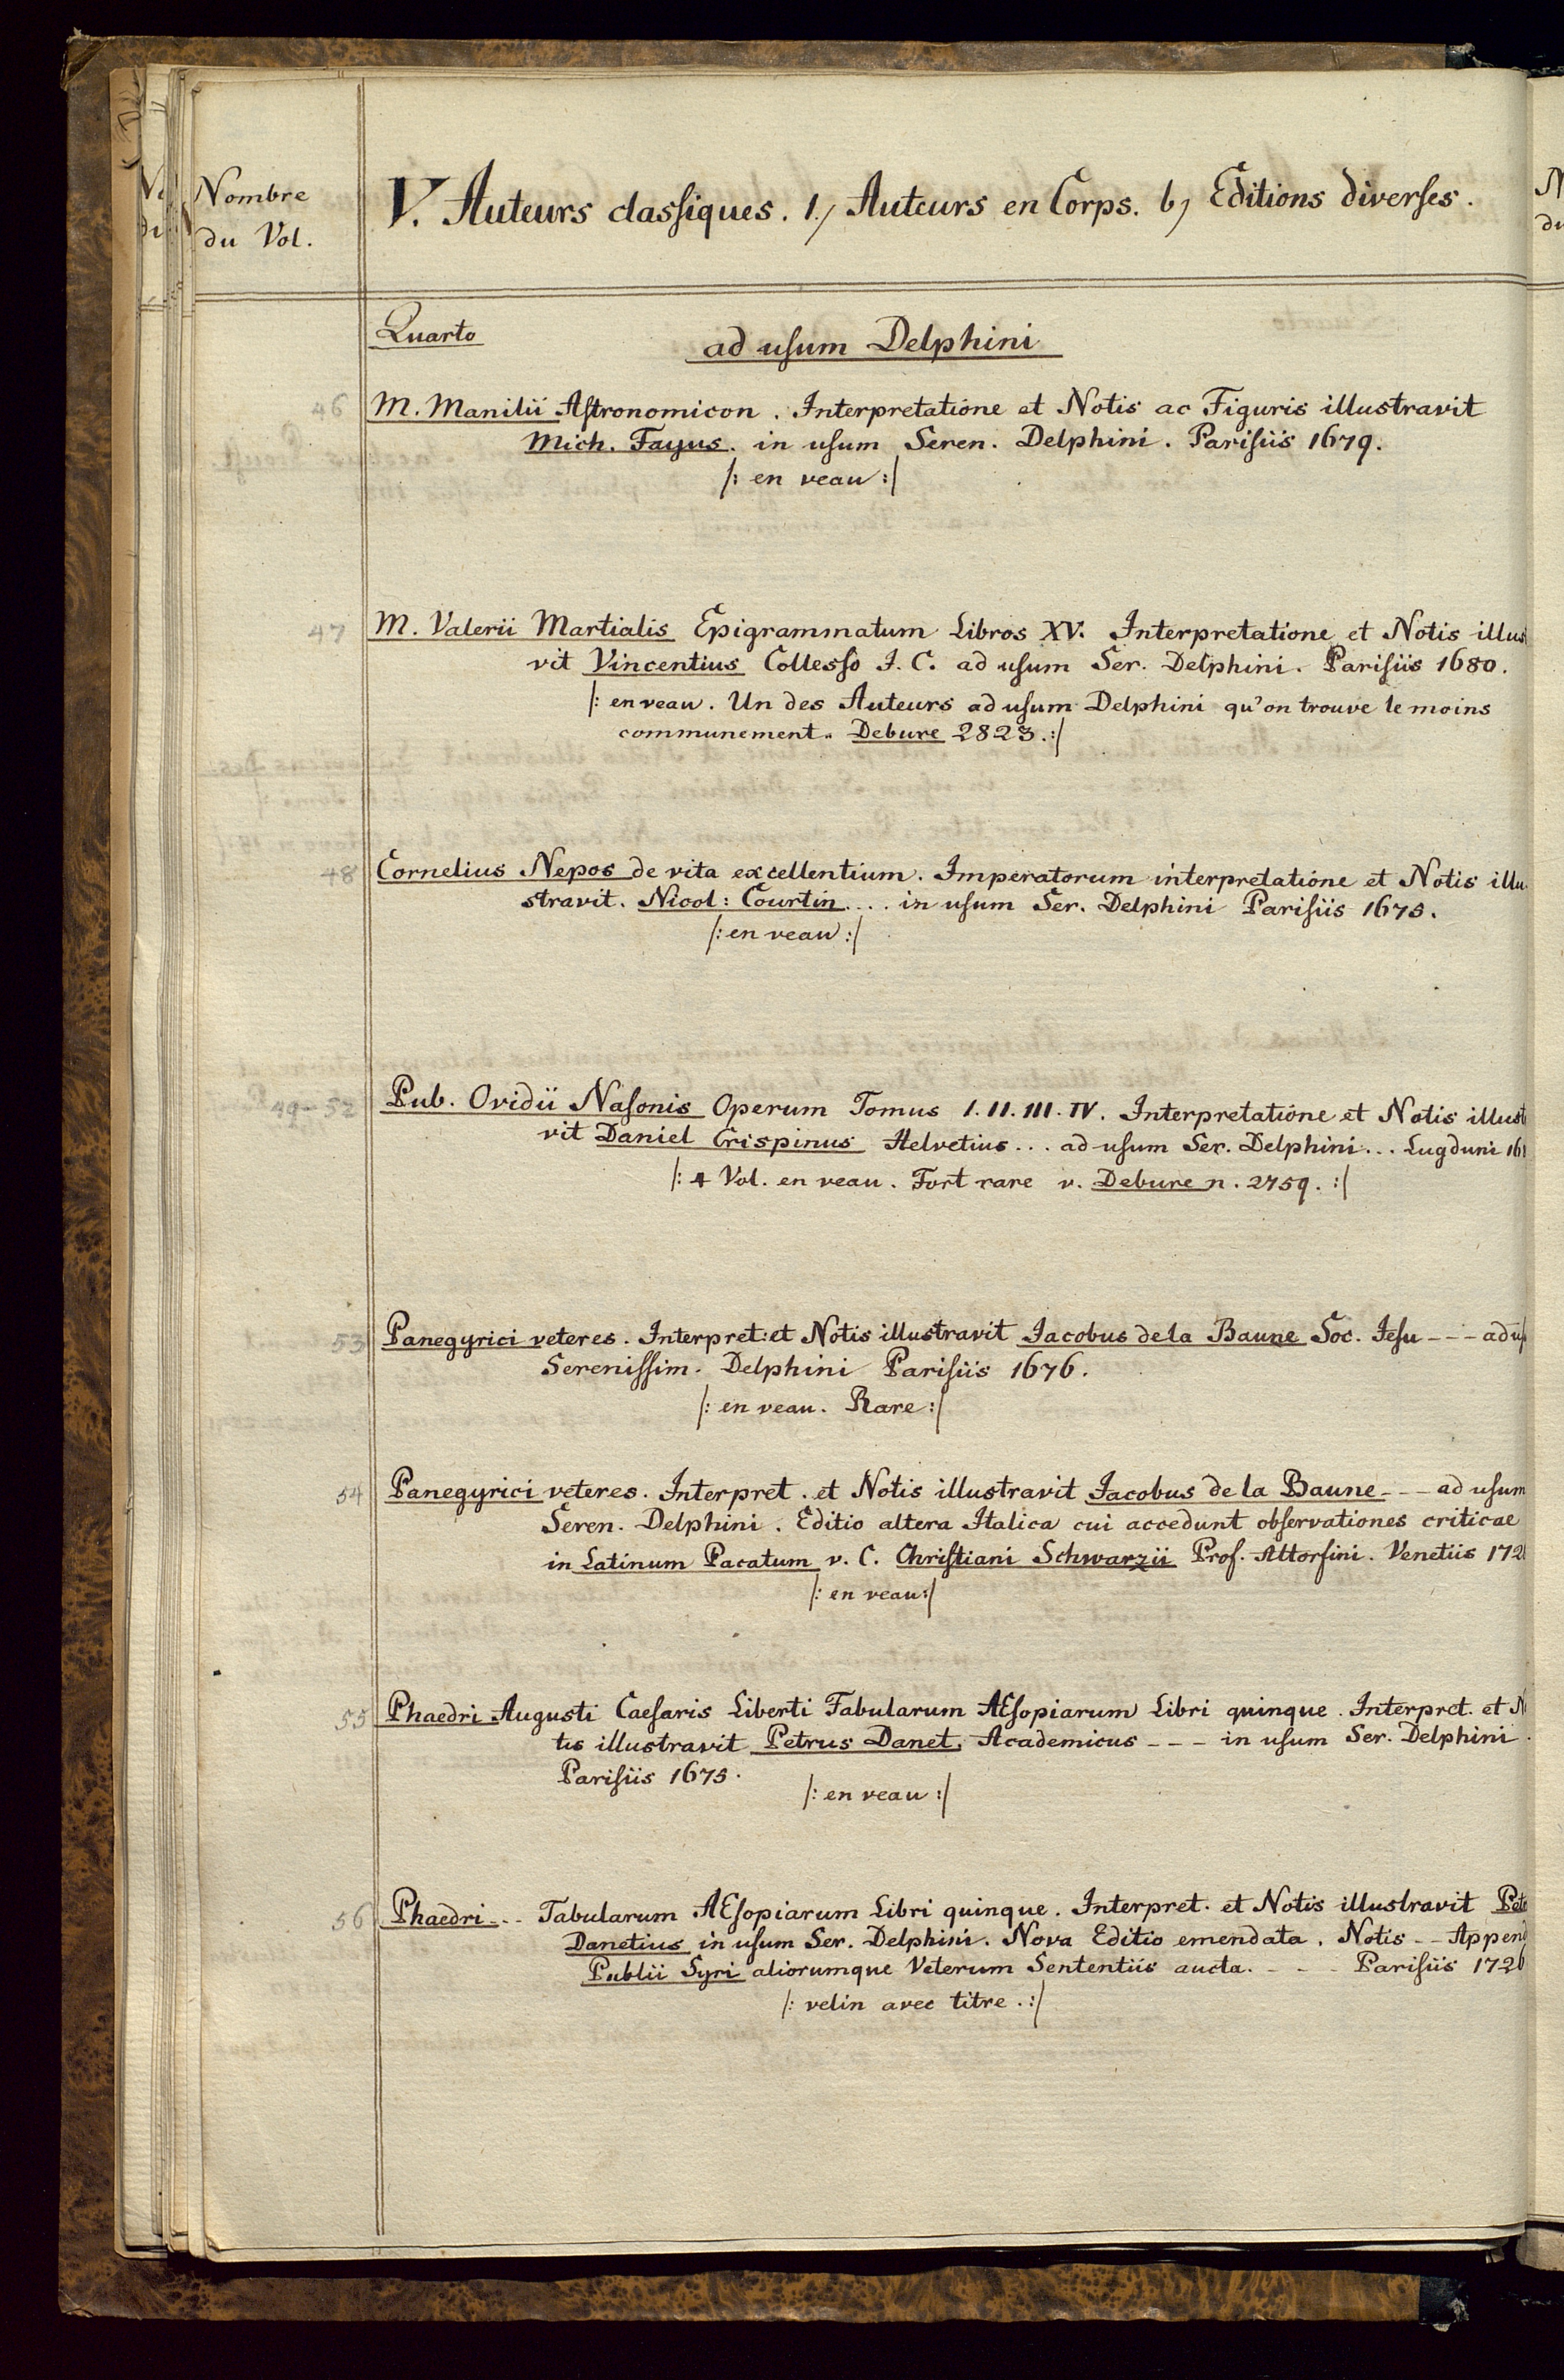 Nombre
du Vol.
V. Auteurs classiques. 1.) Auteurs en Corps. b) Editions diverses.
Quarto
ad usum Delphini
46 M. Manilii Astronomicon. Interpretatione et Notis ac Figuris illustravit
Mich. Fayus. in usum Seren. Delphini. Parisiis 1679.
/: en veau :/
47 M. Valerii Martialis Epigrammatum Libros XV. Interpretatione et Notis illus
vit Vincentius Collesso J. C. ad usum Ser. Delphini. Parisiis 1680.
/: en veau. Un des Auteurs ad usum Delphini qu'on trouve le moins
communement. Debure 2823. :/
48 Cornelius Nepos de vita excellentium. Imperatorum interpretatione et Notis illu
stravit. Nicol: Courtin.... in usum Ser. Delphini Parisiis 1675.
/: en veau :/
49-52 Pub. Ovidii Nasonis Operum Tomus I. II. III. IV. Interpretatione et Notis illust
vit Daniel Crispinus Helvetius... ad usum Ser. Delphini... Lugduni 16
/: 4 Vol. en veau. Fort rare v. Debure n. 2759. :/
53 Panegyrici veteres. Interpret: et Notis illustravit Jacobus de la Baune Soc. Jesu --- ad us
Serenissim. Delphini Parisiis 1676.
/: en veau. Rare :/
54 Panegyrici veteres. Interpret. et Notis illustravit Jacobus de la Baune --- ad usum
Seren. Delphini. Editio altera Italica cui accedunt observationes criticae
in Latinum Pacatum v. C. Christiani Schwarzii Prof. Altorfini. Venetiis 172
/: en veau :/
55 Phaedri Augusti Caesaris Liberti Fabularum AEsopiarum Libri quinque. Interpret. et N
tis illustravit Petrus Danet, Academicus --- in usum Ser. Delphini.
Parisiis 1675.
/: en veau :/
56 Phaedri... Fabularum AEsopiarum Libri quinque. Interpret. et Notis illustravit Pet
Danetius in usum Ser. Delphini. Nova Editio emendata. Notis -- Append
Publii Syri aliorumque Veterum Sententiis aucta. --- Parisiis 172
/: velin avec titre. :/